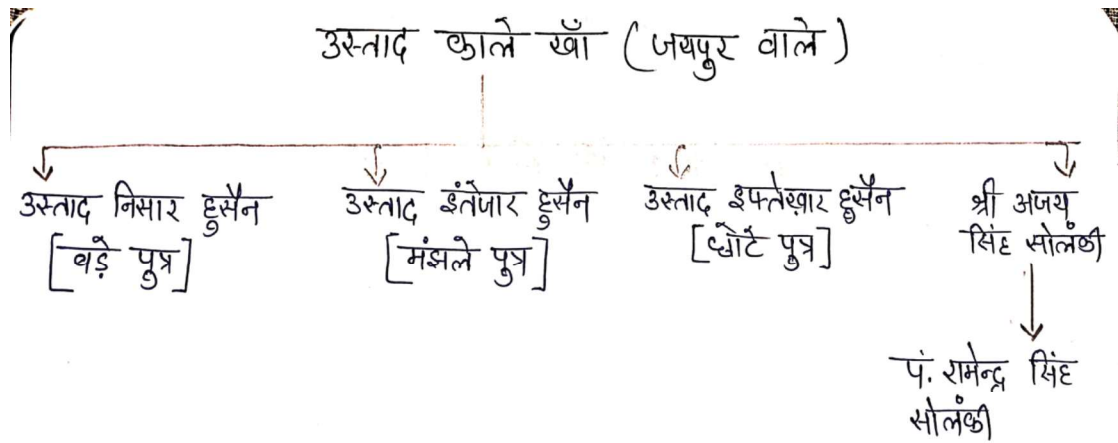 उस्ताद काले खाँ (जयपुर वाले)
उस्ताद निसार हुसैन
[बड़े पुत्र]
उस्ताद इंतेजार हुसैन
[मंझले पुत्र]
उस्ताद इफ्तेख़ार हुसैन
[छोटे पुत्र]
श्री अजय
सिंह सोलंकी
पं. रामेन्द्र सिंह
सोलंकी